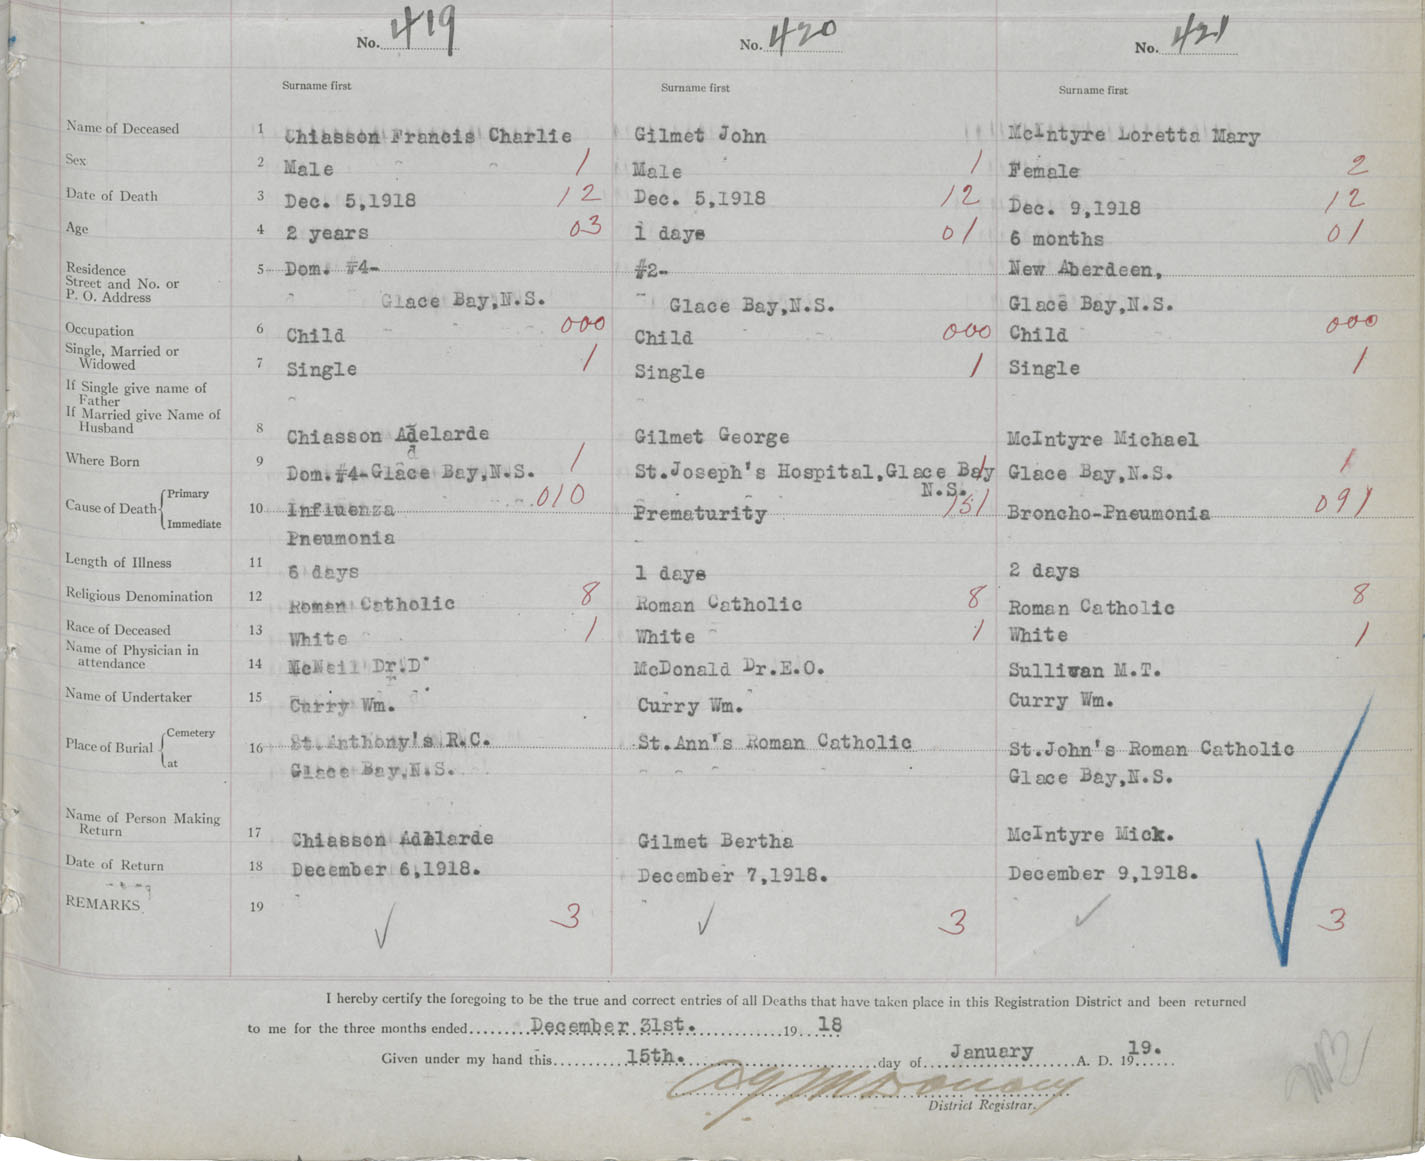 No. 419 No. 420 No. 421
Surname first Surname first Surname first
Name of Deceased 1 Chiasson Francis Charlie Gilmet John McIntyre Loretta Mary
Sex 2 Male 1 Male 1 Female 2
Date of Death 3 Dec. 5,1918 12 Dec. 5,1918 12 Dec. 9,1918 12
Age 4 2 years 03 1 days 01 6 months 01
Residence 5 Dom. #4- #2- New Aberdeen,
Street and No. or
P. O. Address Glace Bay,N.S. Glace Bay,N.S. Glace Bay,N.S.
Occupation 6 Child 000 Child 000 Child 000
Single, Married or
Widowed 7 Single 1 Single 1 Single 1
If Single give name of
Father
If Married give Name of
Husband 8 Chiasson Adelarde Gilmet George McIntyre Michael
d
Where Born 9 Dom.#4-Glace Bay,N.S. 1 St.Joseph's Hospital,Glace Bay 1 Glace Bay,N.S. 1
N.S.
Cause of Death Primary 10 Influenza 010 Prematurity 151 Broncho-Pneumonia 091
Immediate Pneumonia
Length of Illness 11 6 days 1 days 2 days
Religious Denomination 12 Roman Catholic 8 Roman Catholic 8 Roman Catholic 8
Race of Deceased 13 White 1 White 1 White 1
Name of Physician in
attendance 14 McNeil Dr.D McDonald Dr.E.O. Sullivan M.T.
Name of Undertaker 15 Curry Wm. Curry Wm. Curry Wm.
Place of Burial Cemetery 16 St.Anthony's R.C. St.Ann's Roman Catholic St.John's Roman Catholic
at Glace Bay,N.S. Glace Bay,N.S.
Name of Person Making
Return 17 Chiasson Adelarde Gilmet Bertha McIntyre Mick.
Date of Return 18 December 6,1918. December 7,1918. December 9,1918.
REMARKS 19 3 3 3
I hereby certify the foregoing to be the true and correct entries of all Deaths that have taken place in this Registration District and been returned
to me for the three months ended December 31st. 19 18
Given under my hand this 15th. day of January A. D. 19 19.
District Registrar.